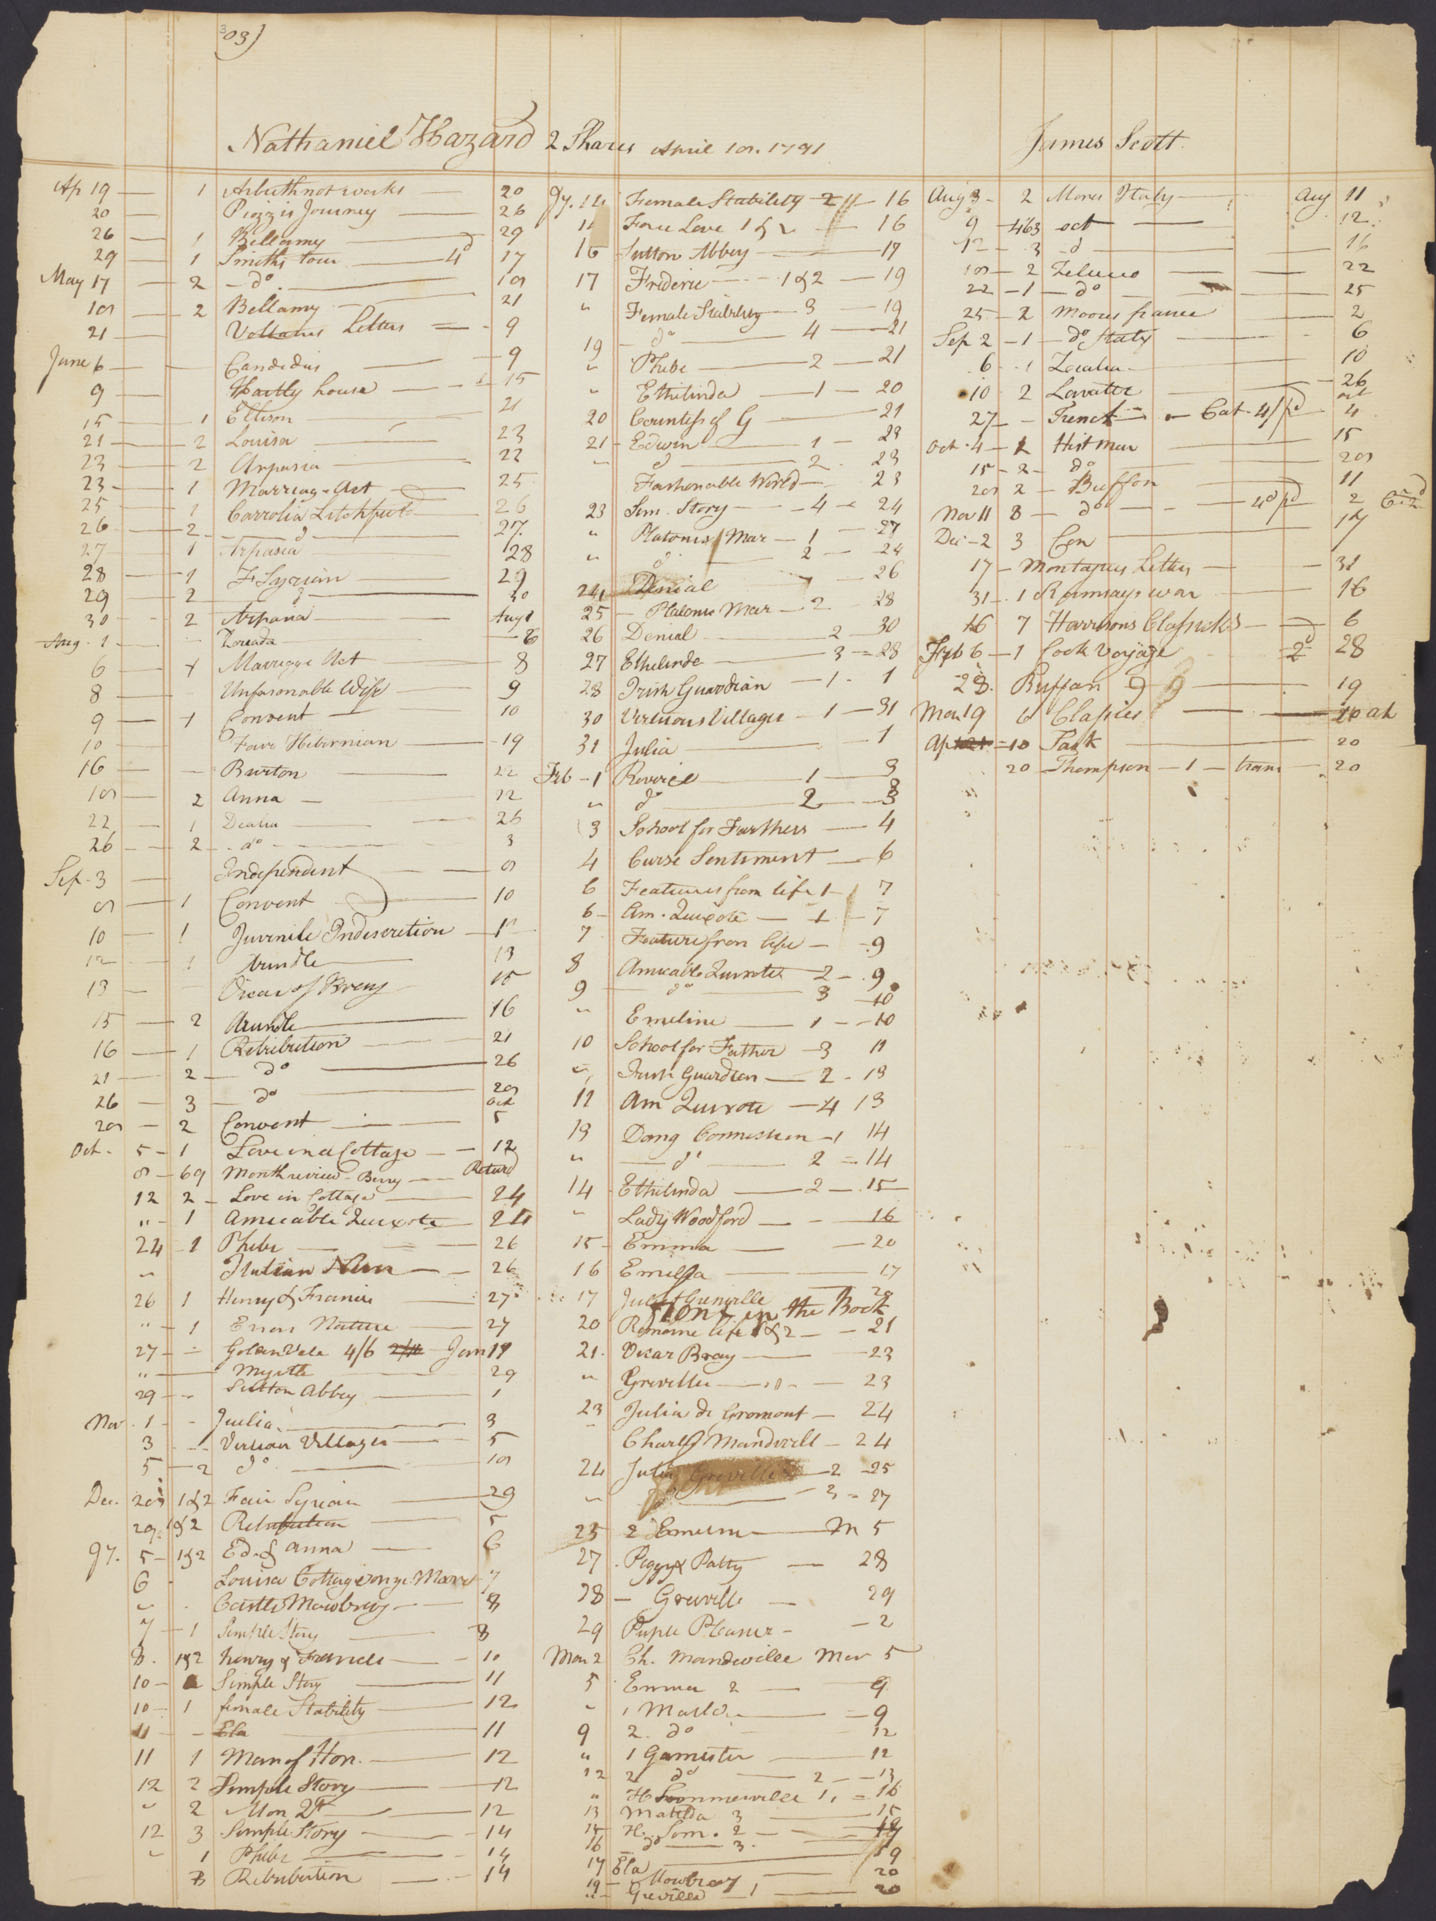 303)
Nathaniel Hazard 2 Shares April 10. 1791
Ap 19 — 1 Arbuthnot works — 20
20 — Piozzis Journey — 26
26 — 1 Bellamy — 29
29 — 1 Smiths tour — 4d 17
May 17 — 2 — do — 10
10 — 2 Bellamy — 21
21 — Voltaires Letters — 9
June 6 — Candidus — 9
9 — Hartly house — 15
15 — 1 Ellison 21
21 — 2 Louisa — 23
23 — 2 Aspasia — 22
23 — 1 Marriage Act — 25
25 1 Carrolin Litchfield 26
26 — 2 — d — 27
27 1 Aspasia 28
28 — 1 F Syrian — 29
29 — 2 — d — 30
30 — 2 Aspasia — Aug 1
Aug. 1 — Zoraida — 6
6 — 1 Marriage Act — 8
8 — Unfasonable Wife — 9
9 — 1 Convent — 10
10 — Fair Hibernian — 19
16 — Burton — 22
10 — 2 Anna — 12
22 — 1 Dealia — 26
26 — 2 do — 3
Sep. 3 — Independent —
1 Convent — 10
10 — 1 Juvenile Indiscretion —
12 — 1 Arundle — 13
13 — Vicar of Bray — 15
15 — 2 Arundle — 16
16 — 1 Retribution — 21
21 — 2 — do — 26
26 — 3 — do — Oct
2 Convent — 5
Oct. 5 — 1 Love in a Cottage — 12
8 — 69 Month review — Berry — Returd
12 2 — Love in Cottage — 24
" — 1 Amicable Quixote — 24
24 — 1 Phebe — 26
" Italian Nun — 26
26 1 Henry & Francis — 27
" — 1 Errors Nature — 27
27 — Golden Vale 4/6 Jan 19
" — Myrtle — 29
29 — Sutton Abbey — 1
Nov. 1 — Juelia — 3
3 — Virtuous Villager — 5
5 — 2 do —
Dec. 1&2 Fair Syrian — 29
29 1&2 Retribution — 5
5 — 1&2 Ed. & Anna — 6
6 Louisa Cottage on ye Moore 7
" Castle Mowbray — 8
7 — 1 Simple Story — 8
8. 1&2 Henry & Francis — 10
10 — 2 Simple Story — 11
10 — 1 female Stability — 12
11 — Ela — 11
11 1 Man of Hon. — 12
12 2 Simple Story — 12
" 2 Mon 2d — 12
12 3 Simple Story — 14
" 1 Phebe — 14
3 Retribution — 14
Female Stability 2 — 16
11 Fair Love 1 & 2 — 16
16 Sutton Abbey — 17
17 Frederic — 1 & 2 — 19
" Female Stability — 3 — 19
19 — do — 4 — 21
" Phebe — 2 — 21
" Ethilinda — 1 — 20
20 Countess of G — 21
21 — Edwin — 1 — 23
" d — 2. 23
Fashonable World — 23
23 Sim. Story — 4 — 24
" Platonis Mar — 1 — 27
" d — 2 — 24
24 Denial — 26
25 — Platonic Mar — 2 — 28
26 Denial — 2 — 30
27 Ethelinde — 3 — 28
28 Irish Guardian — 1. 1
30 Virtuous Villager — 1 — 31
31 Julia — 1
Feb — 1 Reveries — 1 — 3
" do — 2 — 3
3 School for Farthers — 4
4 Curse Sentiment — 6
6 Features from life 1 — 7
6 — Am. Quixote — 1 — 7
7 Feature from life — 9
8 Amicable Quixotes — 2 — 9
9 — do — 3 — 10
" Emeline — 1 — 10
10 School for Father — 3 11
" Irish Guardian — 2 — 13
11 Am Quixote — 4 13
13 Dang Connection — 1 14
" — do — 2 — 14
14 Ethelinda — 2 — 15
" Lady Woodford — 16
15 — Emma — 20
16 Emilia — 17
17 Julia Grenville
Tont in the Book
20 Romaine life 1&2 — 21
21. Vicar Bray — 23
" Greville — 23
23 Julia de Gromont — 24
Charles Mandwell — 24
24 Julia Greville — 2 — 25
" do — 3 — 27
25 2 Emerson — M 5
27. Peggy & Patty — 28
28 — Greville — 29
29 Puple Pleasure — 2
Mar 2 Ch. Mandeville Mar 5
5 Emma 2 — 9
" 1 Matld. — 9
9 2 do — 12
" 1 Gamester — 12
12 2 do — 2 — 13
" H Sommerville 1, — 16
13 Matilda 3 — 15
15 H. Som. 2 —
16 do — 3. —
17 Ela — 19
19 — Mowbray — 20
" — Greville — 1 — 20
James Scott
Aug 3 — 2 Mores Italy — Aug 11
9 oct — 12
12 — 3 — d — 16
10 — 2 Zeluco — 22
22 — 1 — do — 25
25 — 2 Moores france — 2
Sep 2 — 1 — do Italy — 6
6 — 1 Zoraida — 10
10 — 2 Lavater — 26
27 — Trenck — Cat. 4/ pd — 4
Oct. 4 — 1 Hist man — 15
15 — 2 — do — 20
2 — Buffon — 11
Nov 11 3 — do — pd 2
Dec — 2 3 Con — 17
17 — Montagues Letters — 31
31 — 1 Ramsays war — 16
16 7 Harrisons Classicks — 6
Feb 6 — 1 Cook Voyage — 2 28
28. Buffan 9 — 19
Mar 19 6 Classics —
10 Park — 20
20 — Thompson — 1 — trans — 20